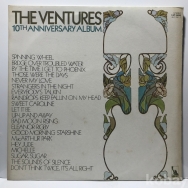 THE VENTURES
10TH ANNIVERSARY ALBUM
SPINNING WHEEL
BRIDGE OVER TROUBLED WATER
BY THE TIME I GET TO PHOENIX
THOSE WERE THE DAYS
NEVER MY LOVE
STRANGERS IN THE NIGHT
EVERYBODY'S TALKIN'
RAINDROPS KEEP FALLIN' ON MY HEAD
SWEET CAROLINE
LET IT BE
UP, UP AND AWAY
BAD MOON RISING
ELEANOR RIGBY
GOOD MORNING STARSHINE
MacARTHUR PARK
HEY JUDE
MICHELLE
SUGAR SUGAR
THE SOUNDS OF SILENCE
DON'T THINK TWICE, IT'S ALL RIGHT